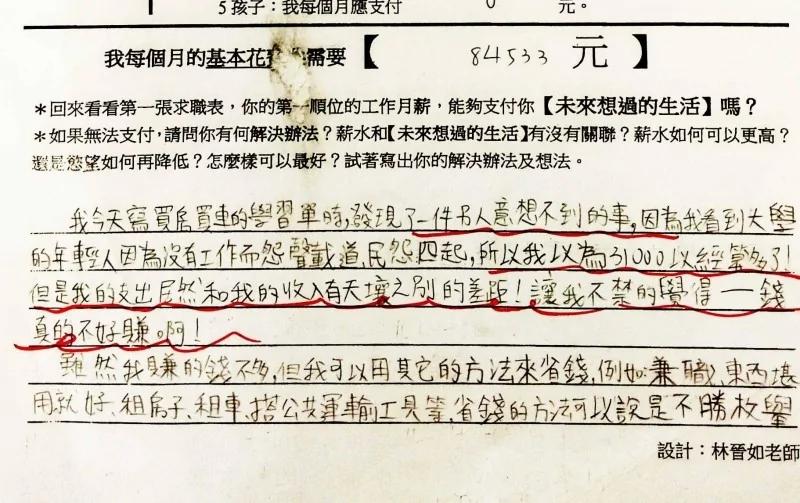 5 孩子:我每個月應支付 0 元。
我每個月的基本花 需要【 84533 元 】
＊回來看看第一張求職表，你的第一順位的工作月薪，能夠支付你【未來想過的生活】嗎？
＊如果無法支付，請問你有何解決辦法？薪水和【未來想過的生活】有沒有關聯？薪水如何可以更高？
還是慾望如何再降低？怎麼樣可以最好？試著寫出你的解決辦法及想法。
我今天寫買房買車的學習單時，發現了一件另人意想不到的事，因為我看到大學
的年輕人因為沒有工作而怨聲載道、民怨四起，所以我以為31000以經算多了！
但是我的支出居然和我的收入有天壤之別的差距！讓我不禁的覺得一錢
真的不好賺。啊！
雖然我賺的錢不多，但我可以用其它的方法來省錢，例如兼職、東西堪
用就好、租房子、租車、搭公共運輸工具等，省錢的方法可以說是不勝枚舉
設計：林晉如老師